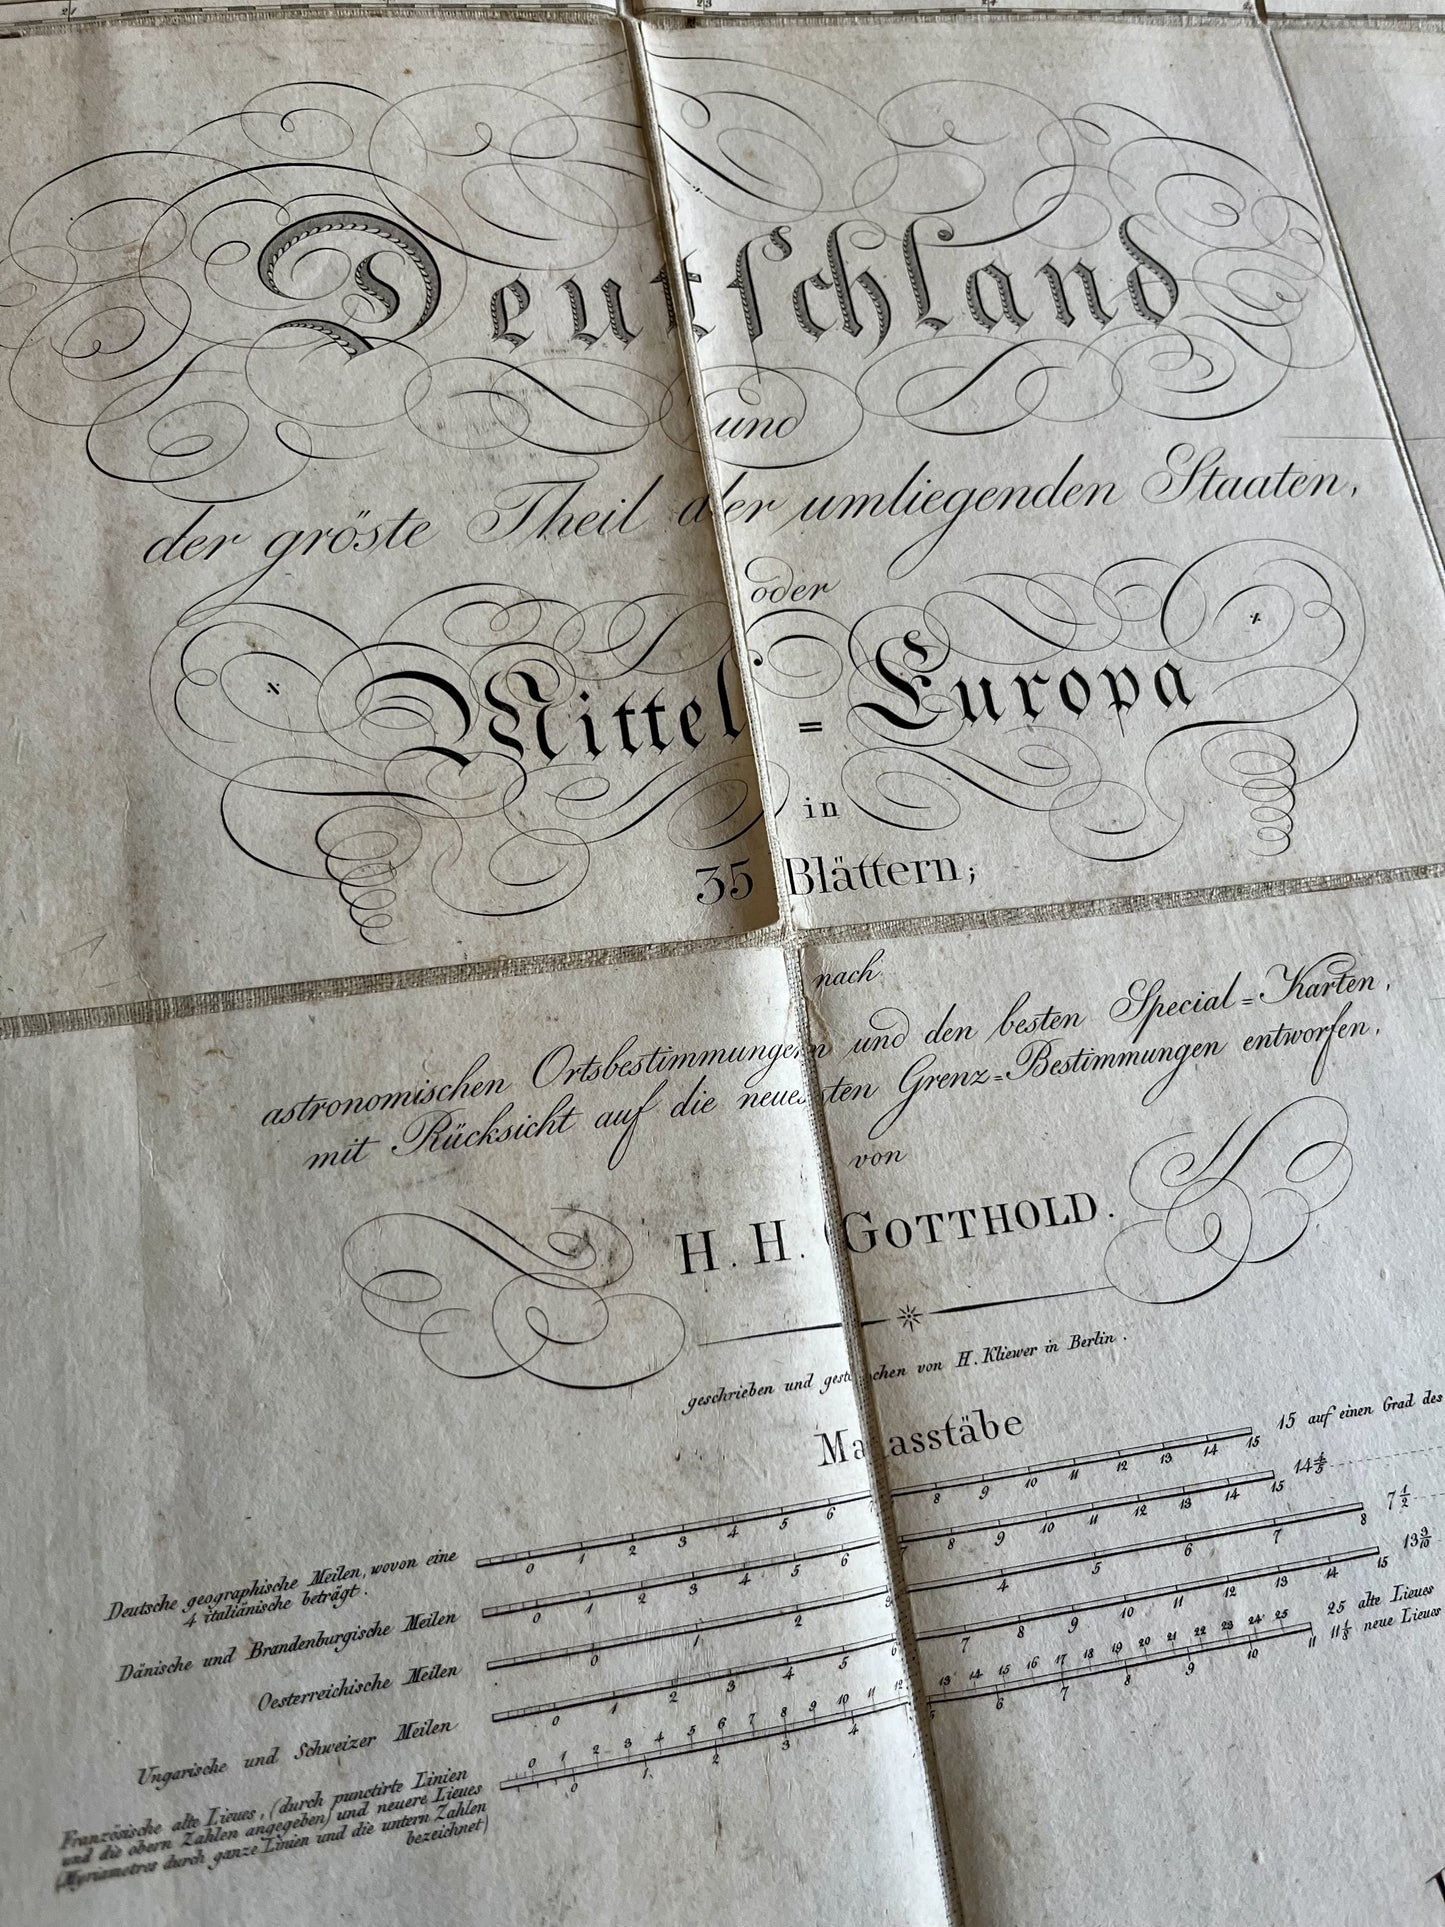 21
23
24
Deutschland
und
der gröste Theil der umliegenden Staaten,
oder
Mittel=Europa
in
35 Blättern;
nach
astronomischen Ortsbestimmungen und den besten Special=Karten,
mit Rücksicht auf die neuesten Grenz=Bestimmungen entworfen,
von
H. H. GOTTHOLD.
geschrieben und gestochen von H. Kliewer in Berlin.
Maasstäbe
Deutsche geographische Meilen, wovon eine
4 italiänische beträgt.
0 1 2 3 4 5 6 7 8 9 10 11 12 13 14 15
15 auf einen Grad des
Dänische und Brandenburgische Meilen
0 1 2 3 4 5 6 7 8 9 10 11 12 13 14 15
14 4/5
Oesterreichische Meilen
0 1 2 3 4 5 6 7 8
7 1/2
Ungarische und Schweizer Meilen
0 1 2 3 4 5 6 7 8 9 10 11 12 13 14 15
13 3/10
Französische alte Lieues, (durch punctirte Linien
und die obern Zahlen angegeben) und neuere Lieues
(Myriametres durch ganze Linien und die untern Zahlen
bezeichnet)
0 1 2 3 4 5 6 7 8 9 10 11 12 13 14 15 16 17 18 19 20 21 22 23 24 25
0 1 2 3 4 5 6 7 8 9 10 11
25 alte Lieues
11 1/8 neue Lieues